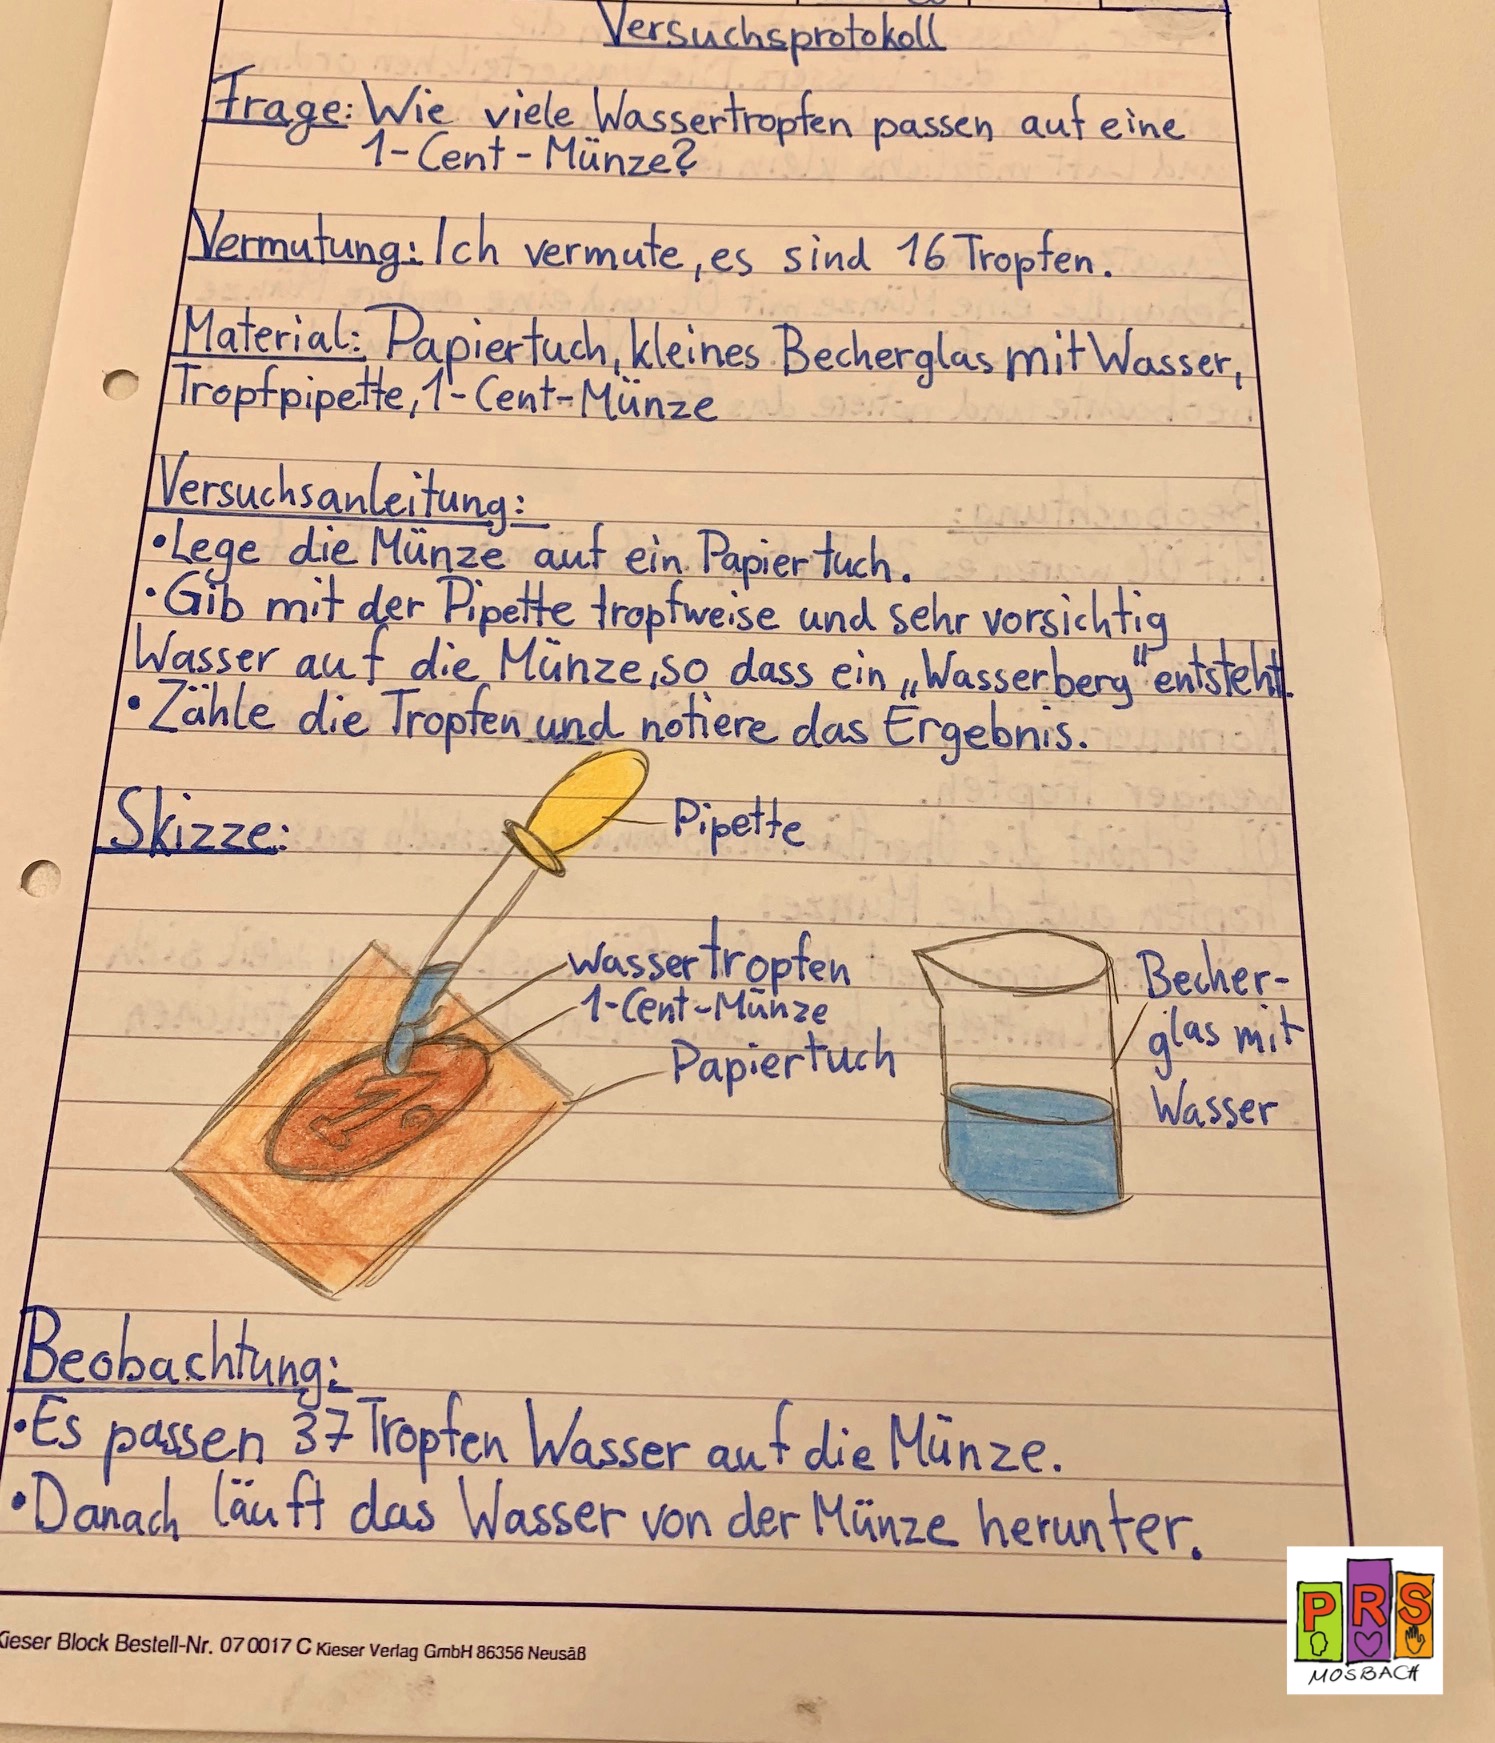 Versuchsprotokoll
Frage: Wie viele Wassertropfen passen auf eine
1-Cent-Münze?
Vermutung: Ich vermute, es sind 16 Tropfen.
Material: Papiertuch, kleines Becherglas mit Wasser,
Tropfpipette, 1-Cent-Münze
Versuchsanleitung:
•Lege die Münze auf ein Papiertuch.
•Gib mit der Pipette tropfweise und sehr vorsichtig
Wasser auf die Münze, so dass ein „Wasserberg" entsteht.
•Zähle die Tropfen und notiere das Ergebnis.
Skizze:
Pipette
Wassertropfen
1-Cent-Münze
Papiertuch
Becher-
glas mit
Wasser
Beobachtung:
•Es passen 37 Tropfen Wasser auf die Münze.
•Danach läuft das Wasser von der Münze herunter.
Kieser Block Bestell-Nr. 07 0017 C Kieser Verlag GmbH 86356 Neusäß
PRS
MOSBACH